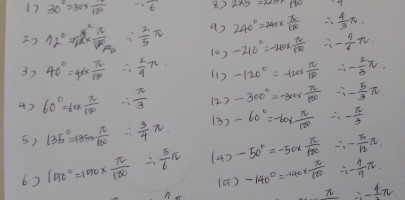 1) 30°=30×π/180 ∴ π/6
2) 72°= π/180 ∴ 2/5 π
3) 40°=40×π/180 ∴ 2/9 π
4) 60°=60×π/180 ∴ π/3
5) 135°=135×π/180 ∴ 3/4 π
6) 150°=150×π/180 ∴ 5/6 π
8) 225°=225×π/180
9) 240°=240×π/180 ∴ 4/3 π
10) -210°=-210×π/180 ∴ -7/6 π
11) -120°=-120×π/180 ∴ -2/3 π
12) -300°=-300×π/180 ∴ -5/3 π
13) -60°=-60×π/180 ∴ -π/3
14) -50°=-50×π/180 ∴ -5/18 π
15) -140°=-140×π/180 ∴ -7/9 π